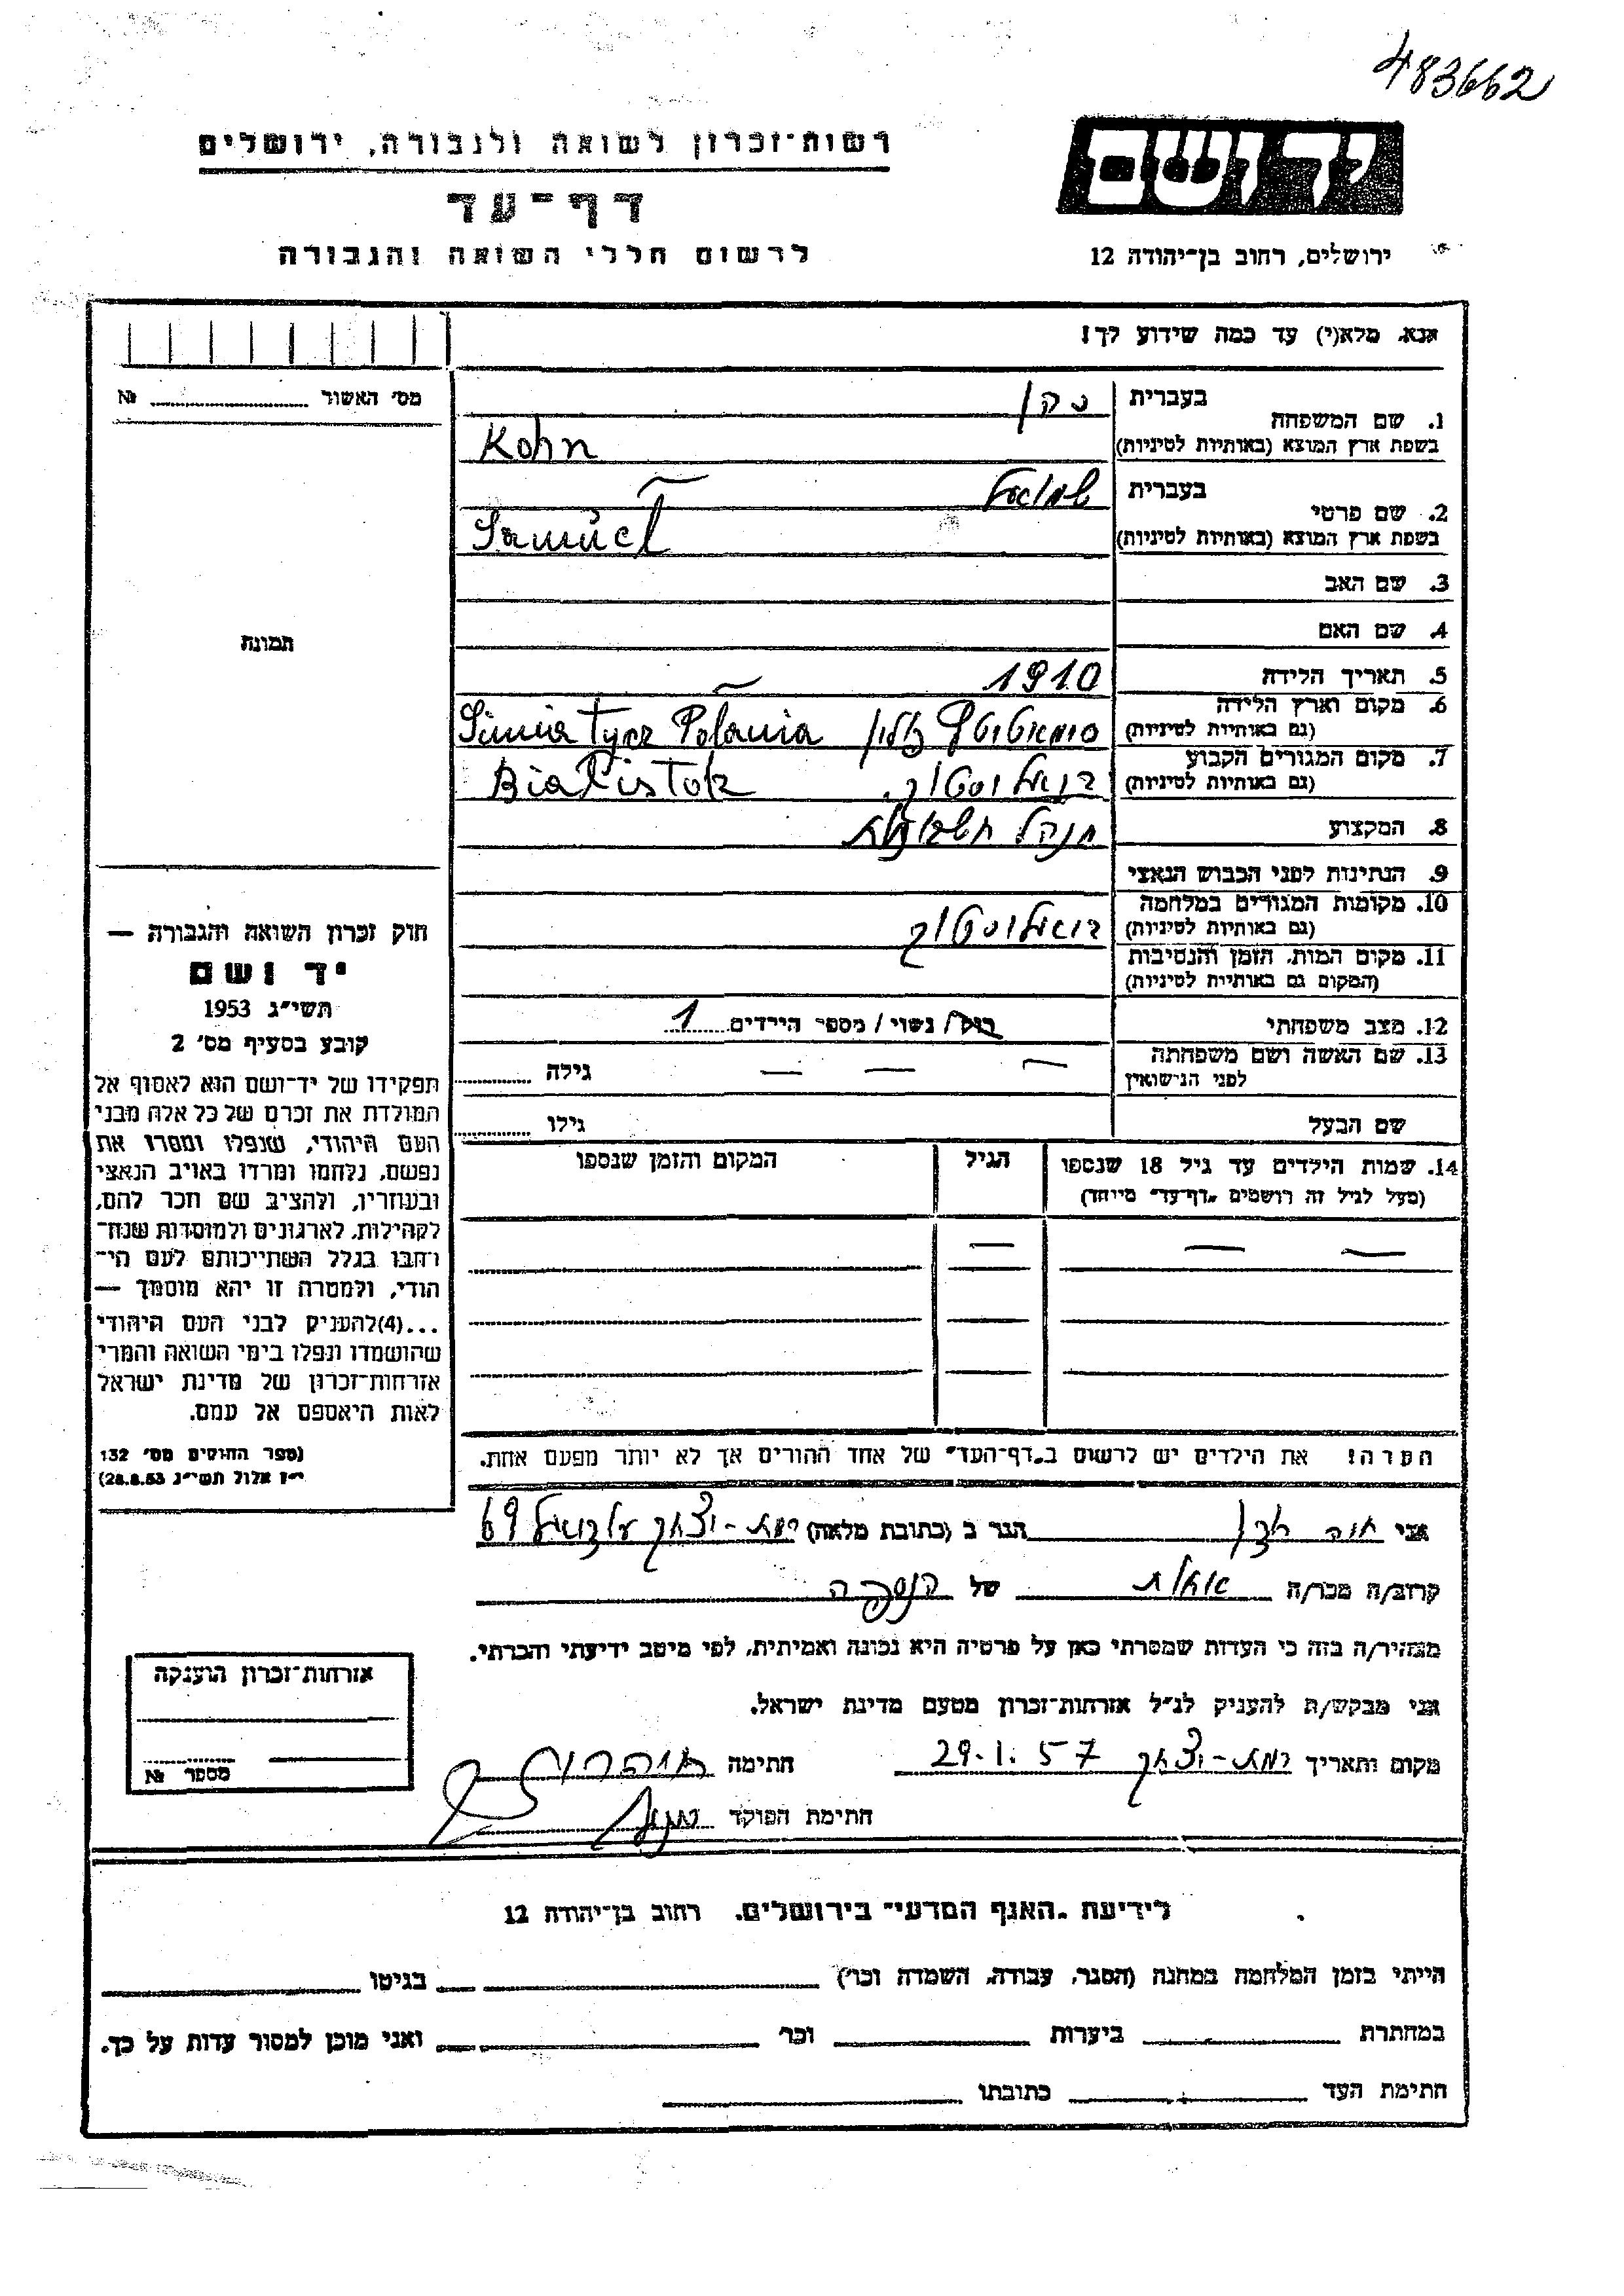 483662
יד ושם
רשות־זכרון לשואה ולגבורה, ירושלים
דף־עד
ירושלים, רחוב בן־יהודה 12
לרשום חללי השואה והגבורה
אנא, מלא(י) עד כמה שידוע לך!
מס׳ האשור № 
1. שם המשפחה
בעברית
כהן
בשפת ארץ המוצא (באותיות לטיניות)
Kohn
2. שם פרטי
בעברית
שמואל
בשפת ארץ המוצא (באותיות לטיניות)
Samuel
3. שם האב
4. שם האם
תמונה
5. תאריך הלידה 1910
6. מקום וארץ הלידה
(גם באותיות לטיניות)
פולין Simiatycz Polania
7. מקום המגורים הקבוע
(גם באותיות לטיניות)
ביאליסטוק. Bialistok
8. המקצוע מנהל חשבונות
9. הנתינות לפני הכבוש הנאצי
10. מקומות המגורים במלחמה
(גם באותיות לטיניות)
ביאליסטוק
11. מקום המות, הזמן והנסיבות
(המקום גם באותיות לטיניות)
12. מצב משפחתי רוק/ נשוי/ מספר הילדים 1
13. שם האשה ושם משפחתה
לפני הנישואין
— — — גילה
שם הבעל גילו
14. שמות הילדים עד גיל 18 שנספו
(מעל לגיל זה רושמים „דף־עד״ מיוחד)
הגיל
המקום והזמן שנספו
— — —
הערה! את הילדים יש לרשום ב„דף־העד״ של אחד ההורים אך לא יותר מפעם אחת.
חוק זכרון השואה והגבורה —
יד ושם
תשי״ג 1953
קובע בסעיף מס׳ 2
תפקידו של יד־ושם הוא לאסוף אל
המולדת את זכרם של כל אלה מבני
העם היהודי, שנפלו ומסרו את
נפשם, נלחמו ומרדו באויב הנאצי
ובעוזריו, ולהציב שם וזכר להם,
לקהילות, לארגונים ולמוסדות שנח־
רבו בגלל השתייכותם לעם הי־
הודי, ולמטרה זו יהא מוסמך —
...(4)להעניק לבני העם היהודי
שהושמדו ונפלו בימי השואה והמרי
אזרחות־זכרון של מדינת ישראל
לאות היאספם אל עמם.
(ספר החוקים מס׳ 132
י״ז אלול תשי״ג 28.8.53)
אני חנה הגר ב (כתובת מלאה) רמת-יצחק 69
קרוב/ה מכר/ה אחות של הנספה
מצהיר/ה בזה כי העדות שמסרתי כאן על פרטיה היא נכונה ואמיתית, לפי מיטב ידיעתי והכרתי.
אני מבקש/ת להעניק לנ״ל אזרחות־זכרון מטעם מדינת ישראל.
מקום ותאריך רמת-יצחק 29.1.57 חתימה
חתימת הפוקד
אזרחות־זכרון הוענקה
מספר №
לידיעת „האגף המדעי״ בירושלים, רחוב בן־יהודה 12
הייתי בזמן המלחמה במחנה (הסגר, עבודה, השמדה וכו׳) בגיטו
במחתרת ביערות וכו׳ ואני מוכן למסור עדות על כך.
חתימת העד כתובתו